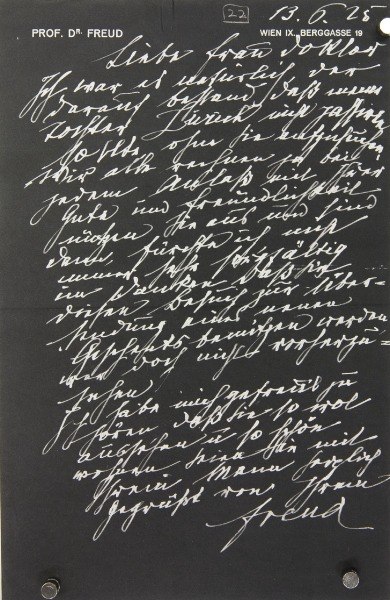 22
13.6.25
PROF. DR. FREUD
WIEN IX., BERGGASSE 19
Liebe Frau Doktor
Ich war es natürlich der
darauf bestand, daß meine
Tochter Zürich nicht passiren
sollte, ohne sie aufzusuchen.
Wir alle rechnen ja bei
jedem Anlaß mit Ihrer
Güte und Freundlichkeit
nützen Sie aus und sind
dann, fürchte ich nicht
immer sehr sorgfältig
im Danken. Daß Sie
diesen Besuch zur Über-
sendung eines neuen
Geschenks benützen werden
war doch nicht vorherzu-
sehen
Ich habe mich gefreut zu
hören daß Sie so wol
aussehen u so schön
wohnen. Seien Sie mit
Ihrem Mann herzlich
gegrüßt von Ihrem
Freud